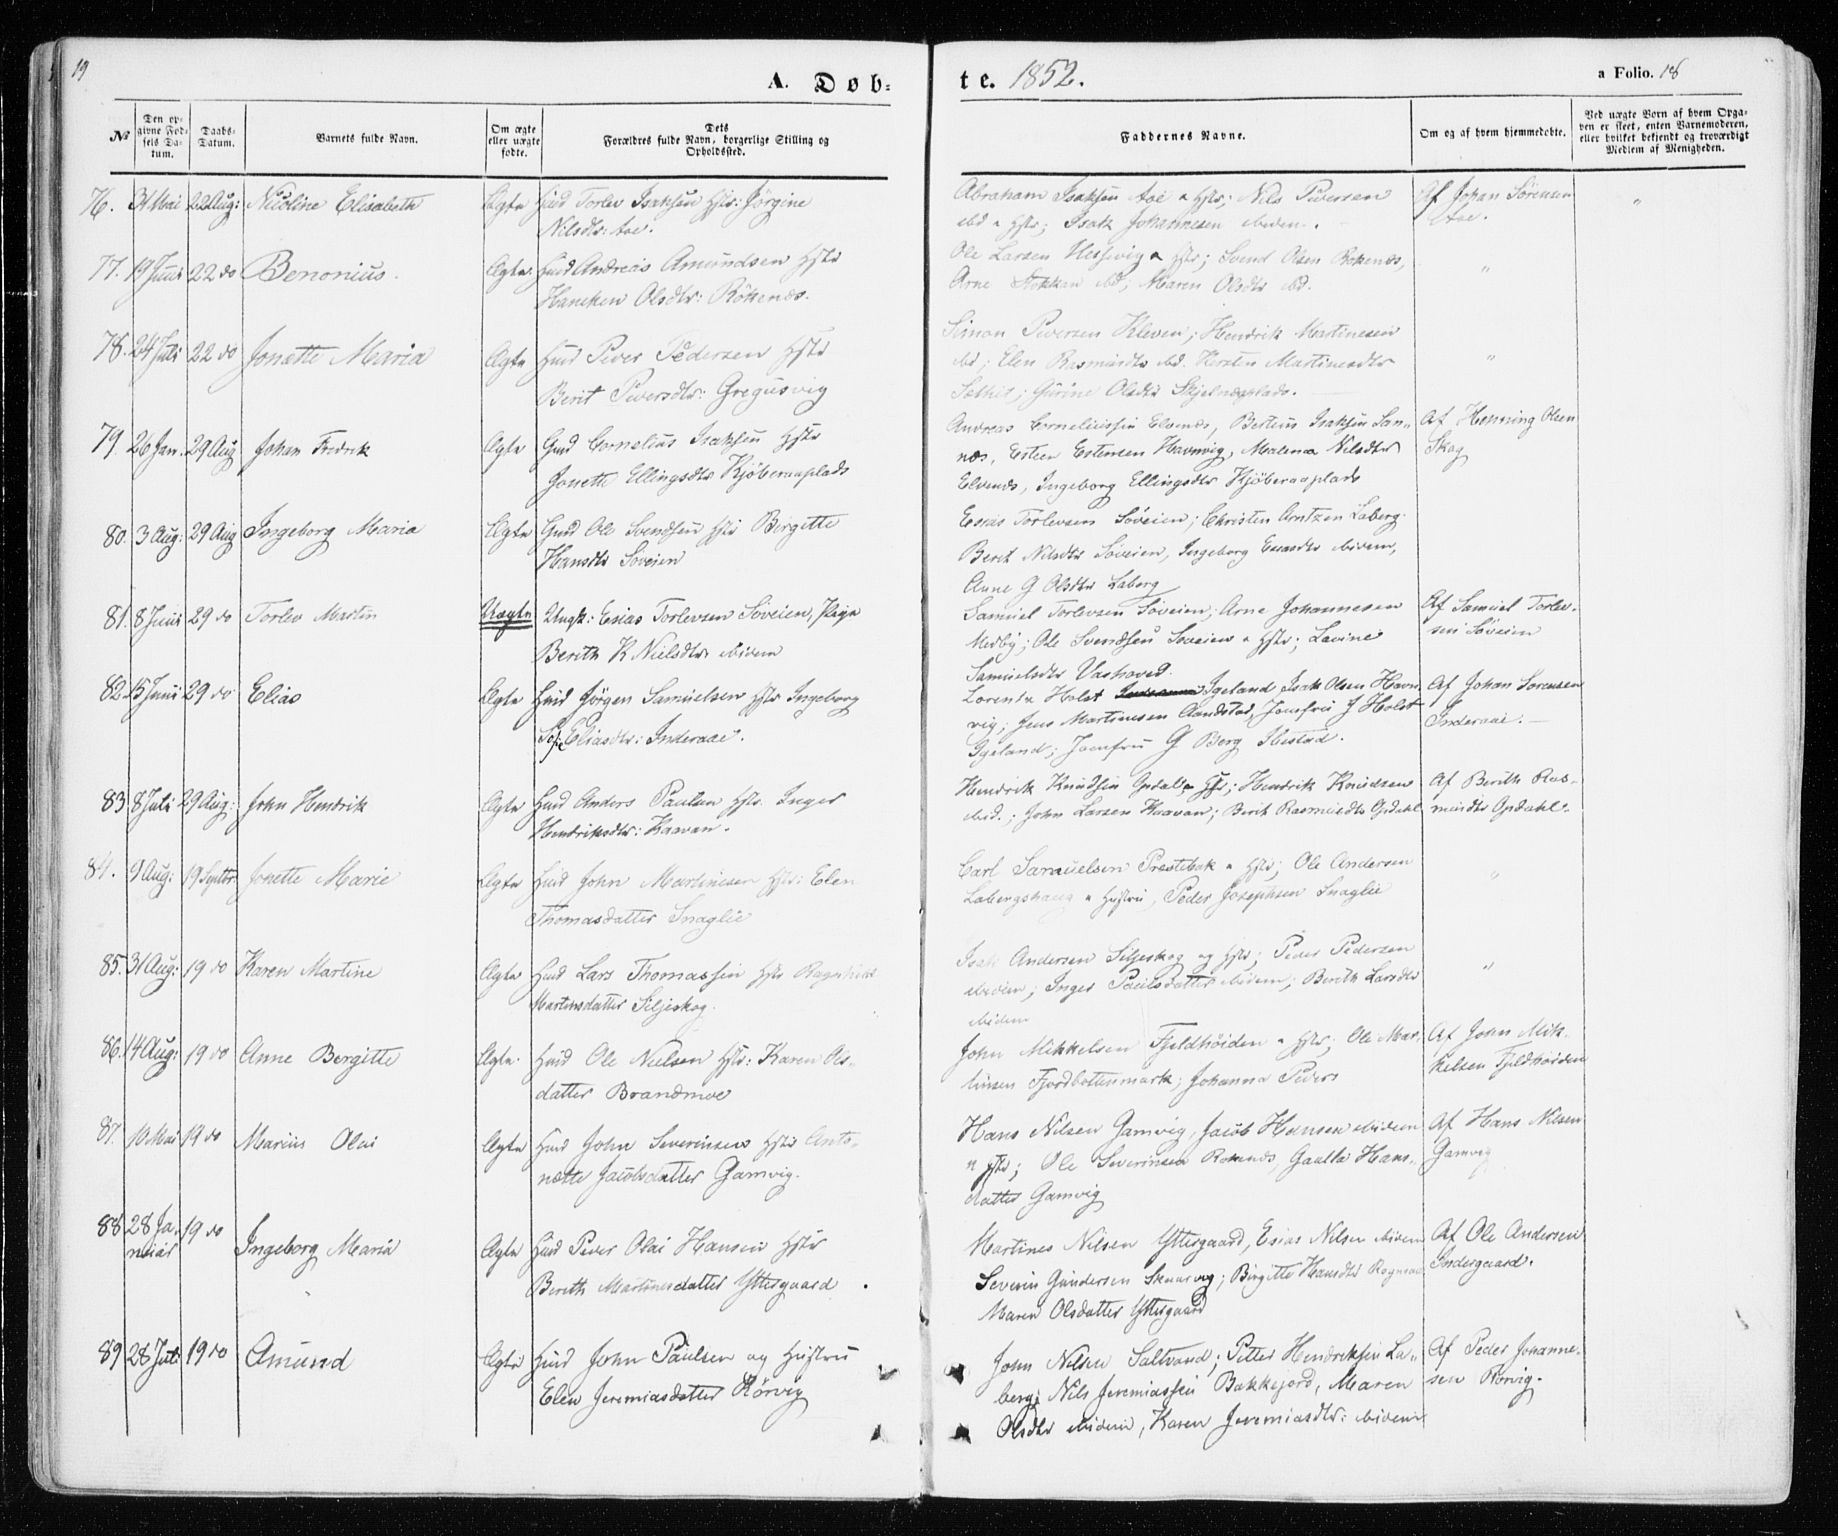 19
A. Døb-
te. 1852.
a Folio. 18
No
Den opgivne Fødsels Datum.
Daabs-Datum.
Barnets fulde Navn.
Om ægte eller uægte fødte.
Dets Forældres fulde Navn, borgerlige Stilling og Opholdssted.
Faddernes Navne.
Om og af hvem hjemmedøbte.
Ved uægte Børn af hvem Opgaven er skeet, enten Barnemoderen, eller hvilket bekjendt og troværdigt Medlem af Menigheden.
76. 31 Mai 22 Aug: Nicoline Elisabeth Ægte Husd Torlev Isaksen Hstr: Jørgine
Nilsdtr: Aae.
Abraham Isaksen Aae & Hstr; Nils Siversen
ibd & Hstr; Isak Johannesen ibidem.
Af Johan Sørensen
Aae.
77. 19 Juni 22 do Benonius. Ægte Husd Andreas Amundsen Hstr
Hancken Olsdtr: Rökenæs.
Ole Larsen Hessevig & Hstr; Svend Olsen Rökenæs,
Arne Stokkan ibd; Maren Olsdtr ibd.
78. 24 Juli 22 do Jonette Maria Ægte Husd Peder Pedersen Hstr
Berit Siversdtr: Gregusvig
Simon Siversen Kleven; Hendrik Martinesen
ibd; Elen Rasmusdtr ibd. Kirsten Martinesdtr
Gurine Olsdtr
79. 26 Jan. 29 Aug Johan Fredrik Ægte Husd Cornelius Isaksen Hstr
Jonette Ellingsdtr Kjöberaaplads
Andreas Corneliussen Elvenæs, Berteus Isaksen San-
næs, Esten Estensen Havnvig, Malena Nilsdtr
Elvenæs, Ingeborg Ellingsdtr Kjöberaaplads
Af Henning Olsen
Skog
80. 3 Aug: 29 Aug Ingeborg Maria Ægte Husd Ole Svendsen Hstr Birgitte
Hansdtr Söveien
Esias Torlevsen Söveien; Christen Arntzen Laberg.
Berit Nilsdtr Söveien, Ingeborg Esiasdtr ibidem,
Anne G Olsdtr Laberg
81. 8 Juni 29 do Torlev Martin Uægte Ungk: Esias Torlevsen Söveien, Pige
Berith K Nielsdtr ibidem
Samuel Torlevsen Söveien; Arne Johannesen
Medby; Ole Svendsen Söveien & Hstr; Lavine
Samuelsdtr Vashoved.
Af Samuel Torlev-
sen Söveien
82. 15 Juni 29 do Elias Ægte Husd Jörgen Samuelsen Hstr Ingeborg
Eliasdtr: Inderaae.
Lorentz Holst Igeland, Isak Olsen Havn-
vig; Jens Martinesen Aandstad, Jomfru J Holst
Igeland; Jomfru G Berg Ibestad.
Af Johan Sörensen
Inderaae.
83 8 Juli 29 Aug: John Hendrik Ægte Husd Anders Paulsen Hstr. Inger
Hendriksdtr: Kaavan.
Hendrik Knudsen Opdal & Hstr; Hendrik Knudsen
ibid.; John Larsen Kaavan; Berit Rasmusdtr Opdahl
Af Berith Ras-
musdtr Opdahl.
84. 9 Aug: 19 Septbr Jonette Marie Ægte Husd John Martinesen Hstr: Elen
Thomasdatter Snaglie
Carl Samuelsen Prestebak & Hstr; Ole Andersen
Labergshaug & Hustru, Peder Josephsen Snaglie
85. 31 Aug: 19 do Karen Martine Ægte Husd Lars Thomassen Hstr Ragnhild
Martinsdatter Siljeskog.
Isak Andersen Siljeskog og Hstr; Peder Pedersen
ibidem; Inger Paulsdatter ibidem; Berith Larsdtr
ibidem
86. 14 Aug: 19 do Anne Bergitte Ægte. Husd Ole Nielsen Hstr: Karen Ols-
datter Brandmoe
John Mikkelsen Fjeldhöiden & Hstr; Ole Mar-
tinsen Fjordbottenmark; Johanna Peders
Af John Mik-
kelsen Fjeldhöiden
87. 10 Mai 19 do Marius Olai Ægte Husd John Severinsen Hstr Anto-
nette Jacobsdatter Gamvig.
Hans Nilsen Gamvig, Jacob Hansen ibidem
& Hstr; Ole Severinsen Rökenæs, Hans-
datter Gamvig
Af Hans Nilsen
Gamvig
88 28 Ja-
nuar 19 do Ingeborg Maria Ægte Husd Peder Olai Hansen Hstr
Berith Martinesdatter Yttergaard.
Martines Nilsen Yttergaard, Esias Nilsen ibidem
Severin Gundersen Skaarvig; Birgitte Hansdtr
Maren Olsdatter Yttergaard
Af Ole Andersen
Indergaard.
89 28 Juli 19 do Amund Ægte Husd John Paulsen og Hustru
Elen Jeremiasdatter Rörvig
John Nilsen Saltvand; Petter Hendriksen La-
berg; Nils Jeremiassen Bakkejord, Maren
Olsdtr ibidem, Karen Jeremiasdtr: ibidem
Af Peder Johanne-
sen Rörvig.